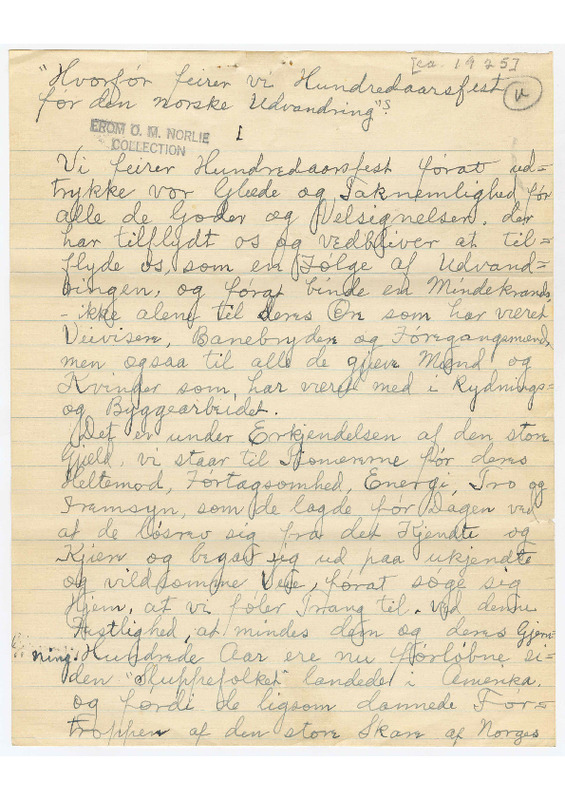 [ca. 1925]
"Hvorfor feirer vi Hundredaarsfest
for den norske Udvandring"?
V
FROM O. M. NORLIE
COLLECTION
I
Vi feirer Hundredaarsfest forat ud=
trykke vor Glæde og Taknemlighed for
alle de Goder og Velsignelser, der
har tilflydt os og vedbliver at til=
flyde os som en Følge af Udvand=
ringen, og forat binde en Mindekrands,
- ikke alene til deres Ære som har været
Veivisere, Banebrydere og Foregangsmænd,
men ogsaa til alle de gjæve Mænd og
Kvinder som har været med i Rydnings=
og Byggearbeidet.
Det er under Erkjendelsen af den store
Gjæld, vi staar til Pionererne for deres
Heltemod, Førtagsomhed, Energi, Tro og
Fremsyn, som de lagde for Dagen ved
at de løsrev sig fra det Kjendte og
Kjære og begav sig ud paa ukjendte
og vildsomme Veie, forat søge sig
Hjem, at vi føler Trang til, ved denne
Festlighed, at mindes dem og deres Gjern=
ning. Hundrede Aar ere nu forløbne si=
den "Sluppefolket" landede i Amerika,
og fordi de ligsom dannede For=
troppen af den store Skare af Norges